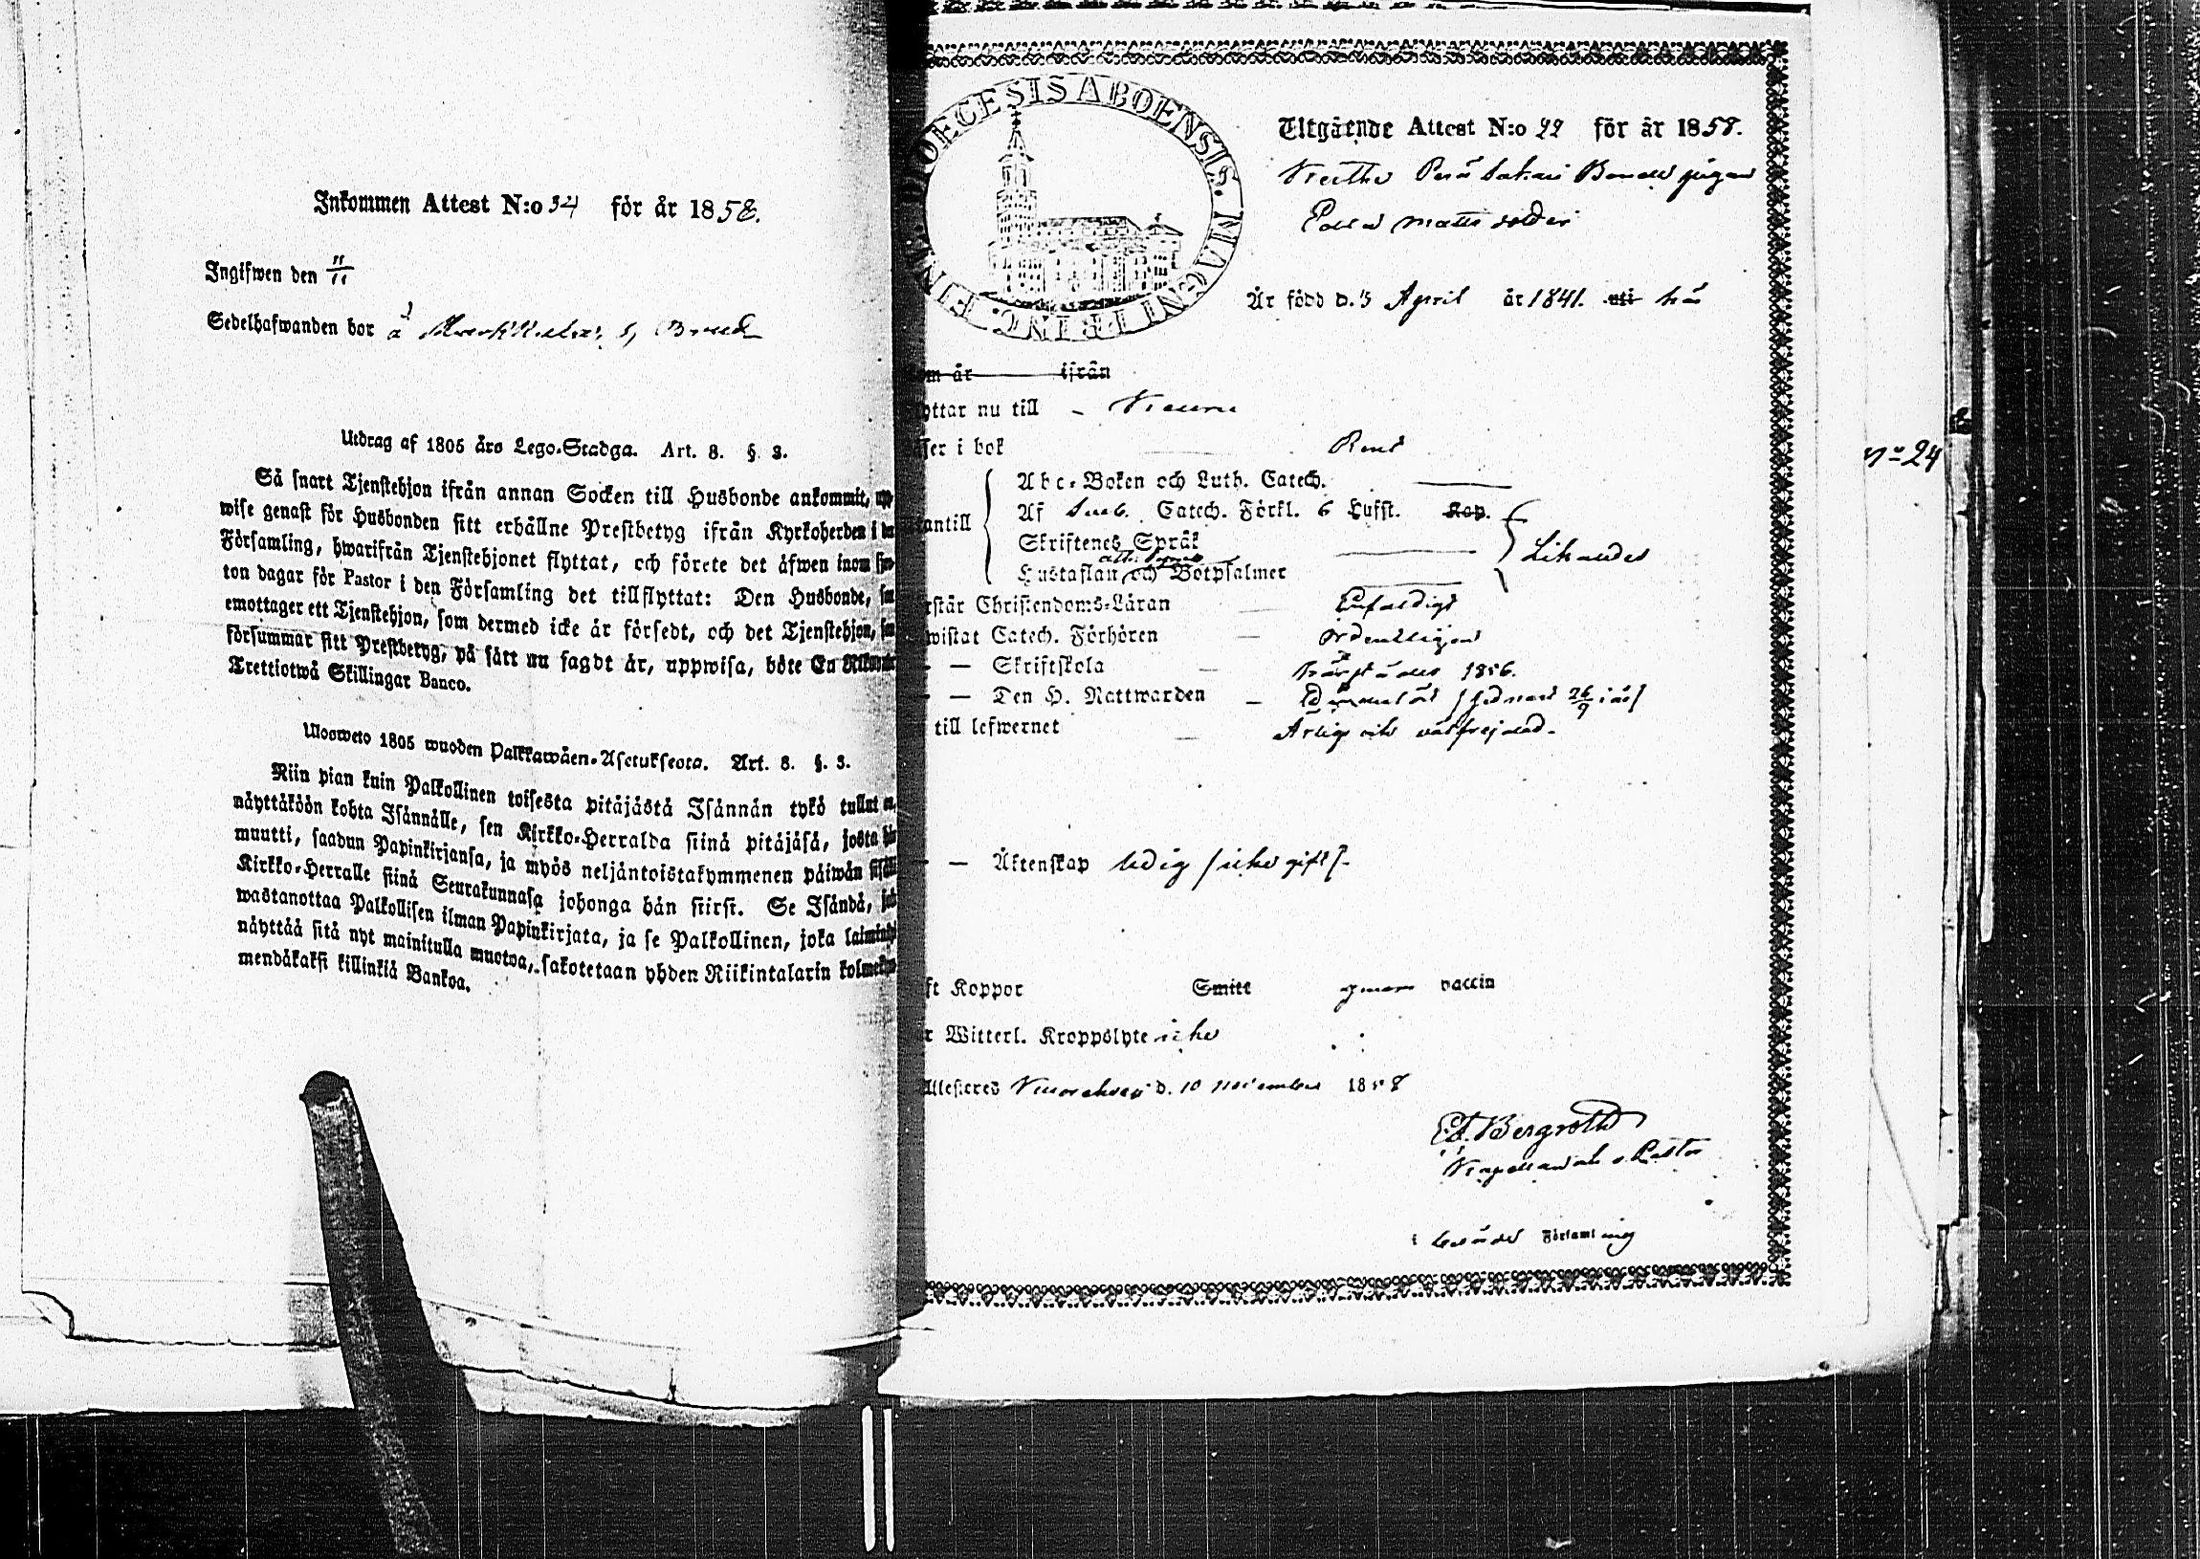 Inkommen Attest N:o 34 för år 1858.
Ingifwen den 11/11
Sedelhafwanden bor å
Utdrag af 1805 års Lego-Stadga. Art. 8. §. 3.
Så snart Tjenstehjon ifrån annan Socken till Husbonde ankommit, upp-
wise genast för Husbonden sitt erhållne Prestbetyg ifrån Kyrkoherden i den
Församling, hwarifrån Tjenstehjonet flyttat, och förete det äfwen inom fjor-
ton dagar för Pastor i den Församling det tillflyttat: Den Husbonde, som
emottager ett Tjenstehjon, som dermed icke är försedt, och det Tjenstehjon, som
försummar sitt Prestbetyg, på sätt nu sagdt är, uppwisa, böte En Riksdaler
Trettiotwå Skillingar Banco.
Ulosweto 1805 wuoden Palkkawäen-Asetuksesta. Art. 8. §. 3.
Niin pian kuin Palkollinen toisesta pitäjästä Isännän tykö tullut on,
näyttäköön kohta Isännälle, sen Kirkko-Herralda siinä pitäjäsä, josta hän
muutti, saadun Papinkirjansa, ja myös neljäntoistakymmenen päiwän sisällä
Kirkko-Herralle siinä Seurakunnasa johonga hän siirsi. Se Isändä, joka
wastanottaa Palkollisen ilman Papinkirjata, ja se Palkollinen, joka laiminlyö
näyttää sitä nyt mainitulla muotoa, sakotetaan yhden Riikintalarin kolmekym-
mendäkaksi killinkiä Bankoa.
DIOECESIS ABOENSIS. MAGNI PRINC. FINL.
Utgående Attest N:o 22 för år 1858.
Matts dotter
Är född d. 5 April år 1841. uti här
om år ifrån
yttar nu till
äser i bok Rent
antill
Abc-Boken och Luth. Catech.
Af Sveb. Catech. Förkl. 6 Lufft. Kap.
Skriftenes Språk
Hustaflan och Botpsalmer
Likaledes
rstår Christendoms-Läran Enfaldigt
wistat Catech. Förhören Ordentligen
— — Skriftskola härstädes 1856.
— — Den H. Nattwarden 26/9 i år
till lefwernet Ärlig och välfrejdad.
— — Äktenskap ledig (icke gift).
ft Koppor Smitt genom vaccin
r Witterl. Kroppslyte icke
Attesteres d. 10 November 1858
Ed. Bergroth
Kapellan och v. Pastor
i Församling
No 24